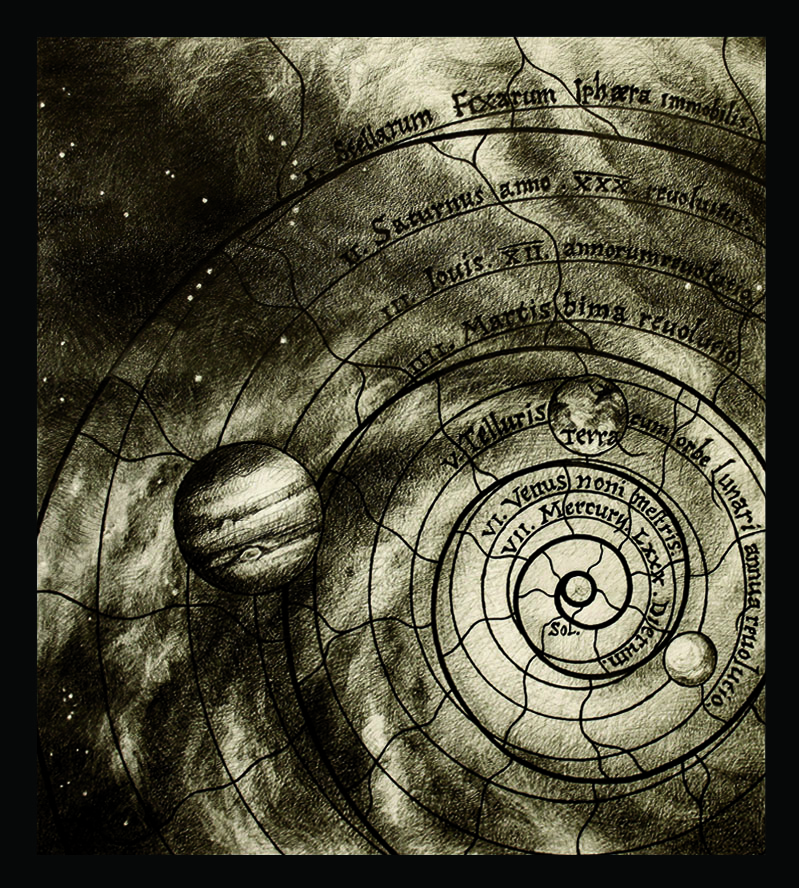 I. Stellarum Fixarum Sphæra immobilis.
II. Saturnus anno XXX revolvitur.
III. Iouis. XII. annorum revolutio
IIII. Martis bima revolutio
V. Telluris cum orbe Lunari annua revolutio.
Terra
VI. Venus noni mestris.
VII. Mercury LXXX. Dierum.
Sol.